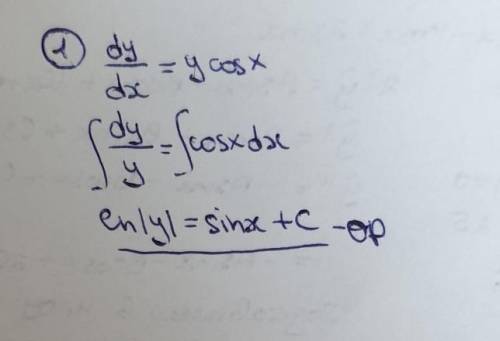 ① dy/dx = y cosx
∫ dy/y = ∫ cosx dx
ln|y| = sinx + C - op